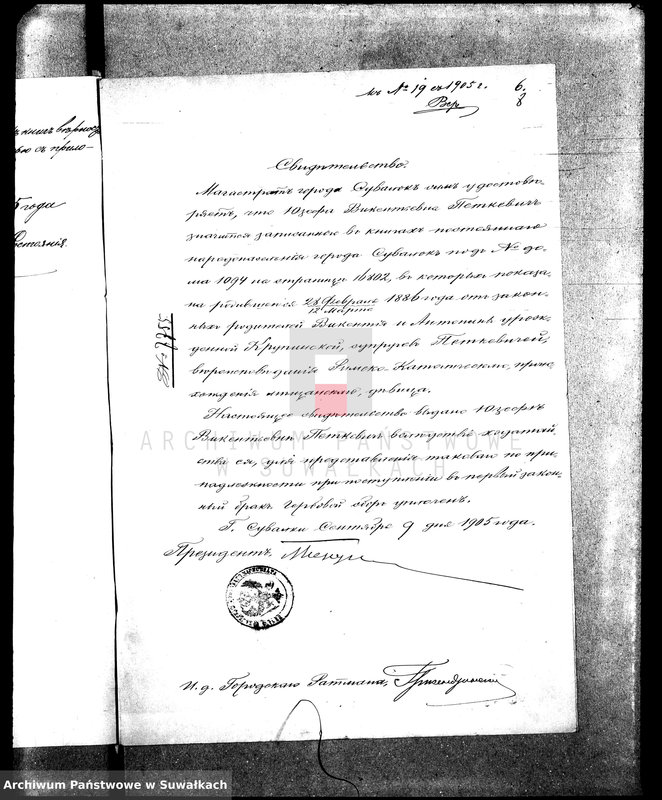 къ № 19 съ 1905 г.
6.
8
Свидѣтельство.
Магистратъ города Сувалокъ симъ удостовѣ-
ряетъ, что Юзефа Викентьевна Петкевичъ
значится записанною въ книгахъ постояннаго
народонаселенія города Сувалокъ подъ № до-
ма 1094 на страницѣ 16802, въ которыхъ показа-
на родившеюся 28 Февраля 1886 года отъ закон-
12 Марта
ныхъ родителей Викентія и Антонины урож-
денной Крупинской, супруговъ Петкевичей,
вѣроисповѣданія Римско-Католическаго, проис-
хожденія мѣщанскаго, дѣвица.
Настоящее свидѣтельство выдано Юзефѣ
Викентьевнѣ Петкевичъ вслѣдствіе ходатай-
ства ея, для представленія таковаго по при-
надлежности при поступленіи въ первый закон-
ный бракъ. Гербовой сборъ уплоченъ.
Г. Сувалки Сентября 9 дня 1905 года.
Президентъ,
И. д. Городскаго Ратмана,
№ 3566
5 года
ARCHIWUM PAŃSTWOWE
W SUWAŁKACH
Archiwum Państwowe w Suwałkach